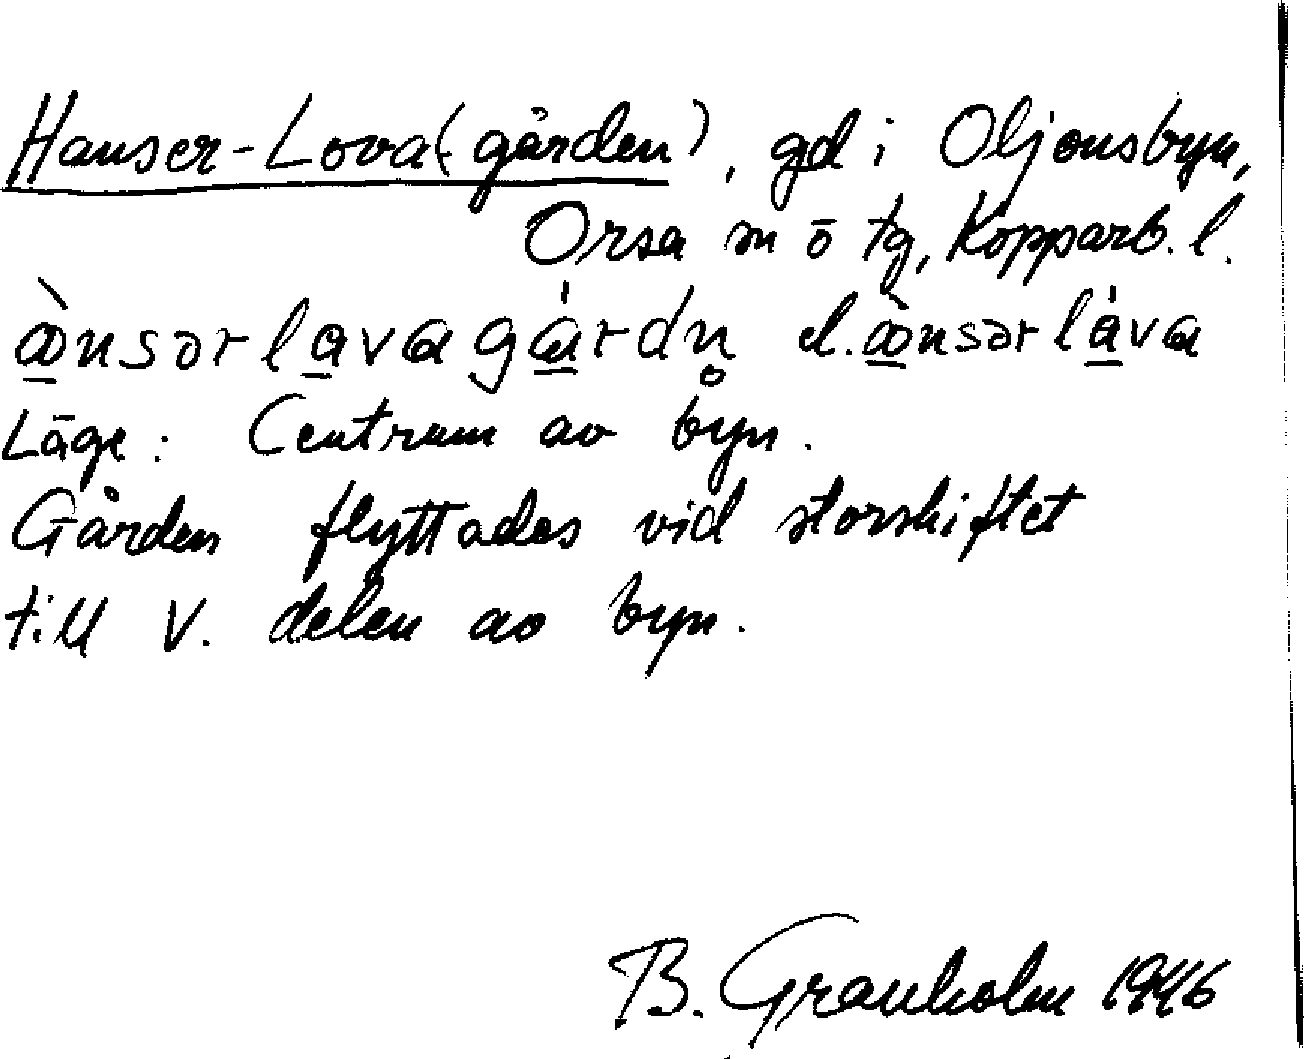 Hanser-Lova(gården), gd i Oljonsbyn,
Orsa sn ö tg, Kopparb. l.
Läge: Centrum av byn.
Gården flyttades vid storskiftet
till V. delen av byn.
B. Granholm 1946